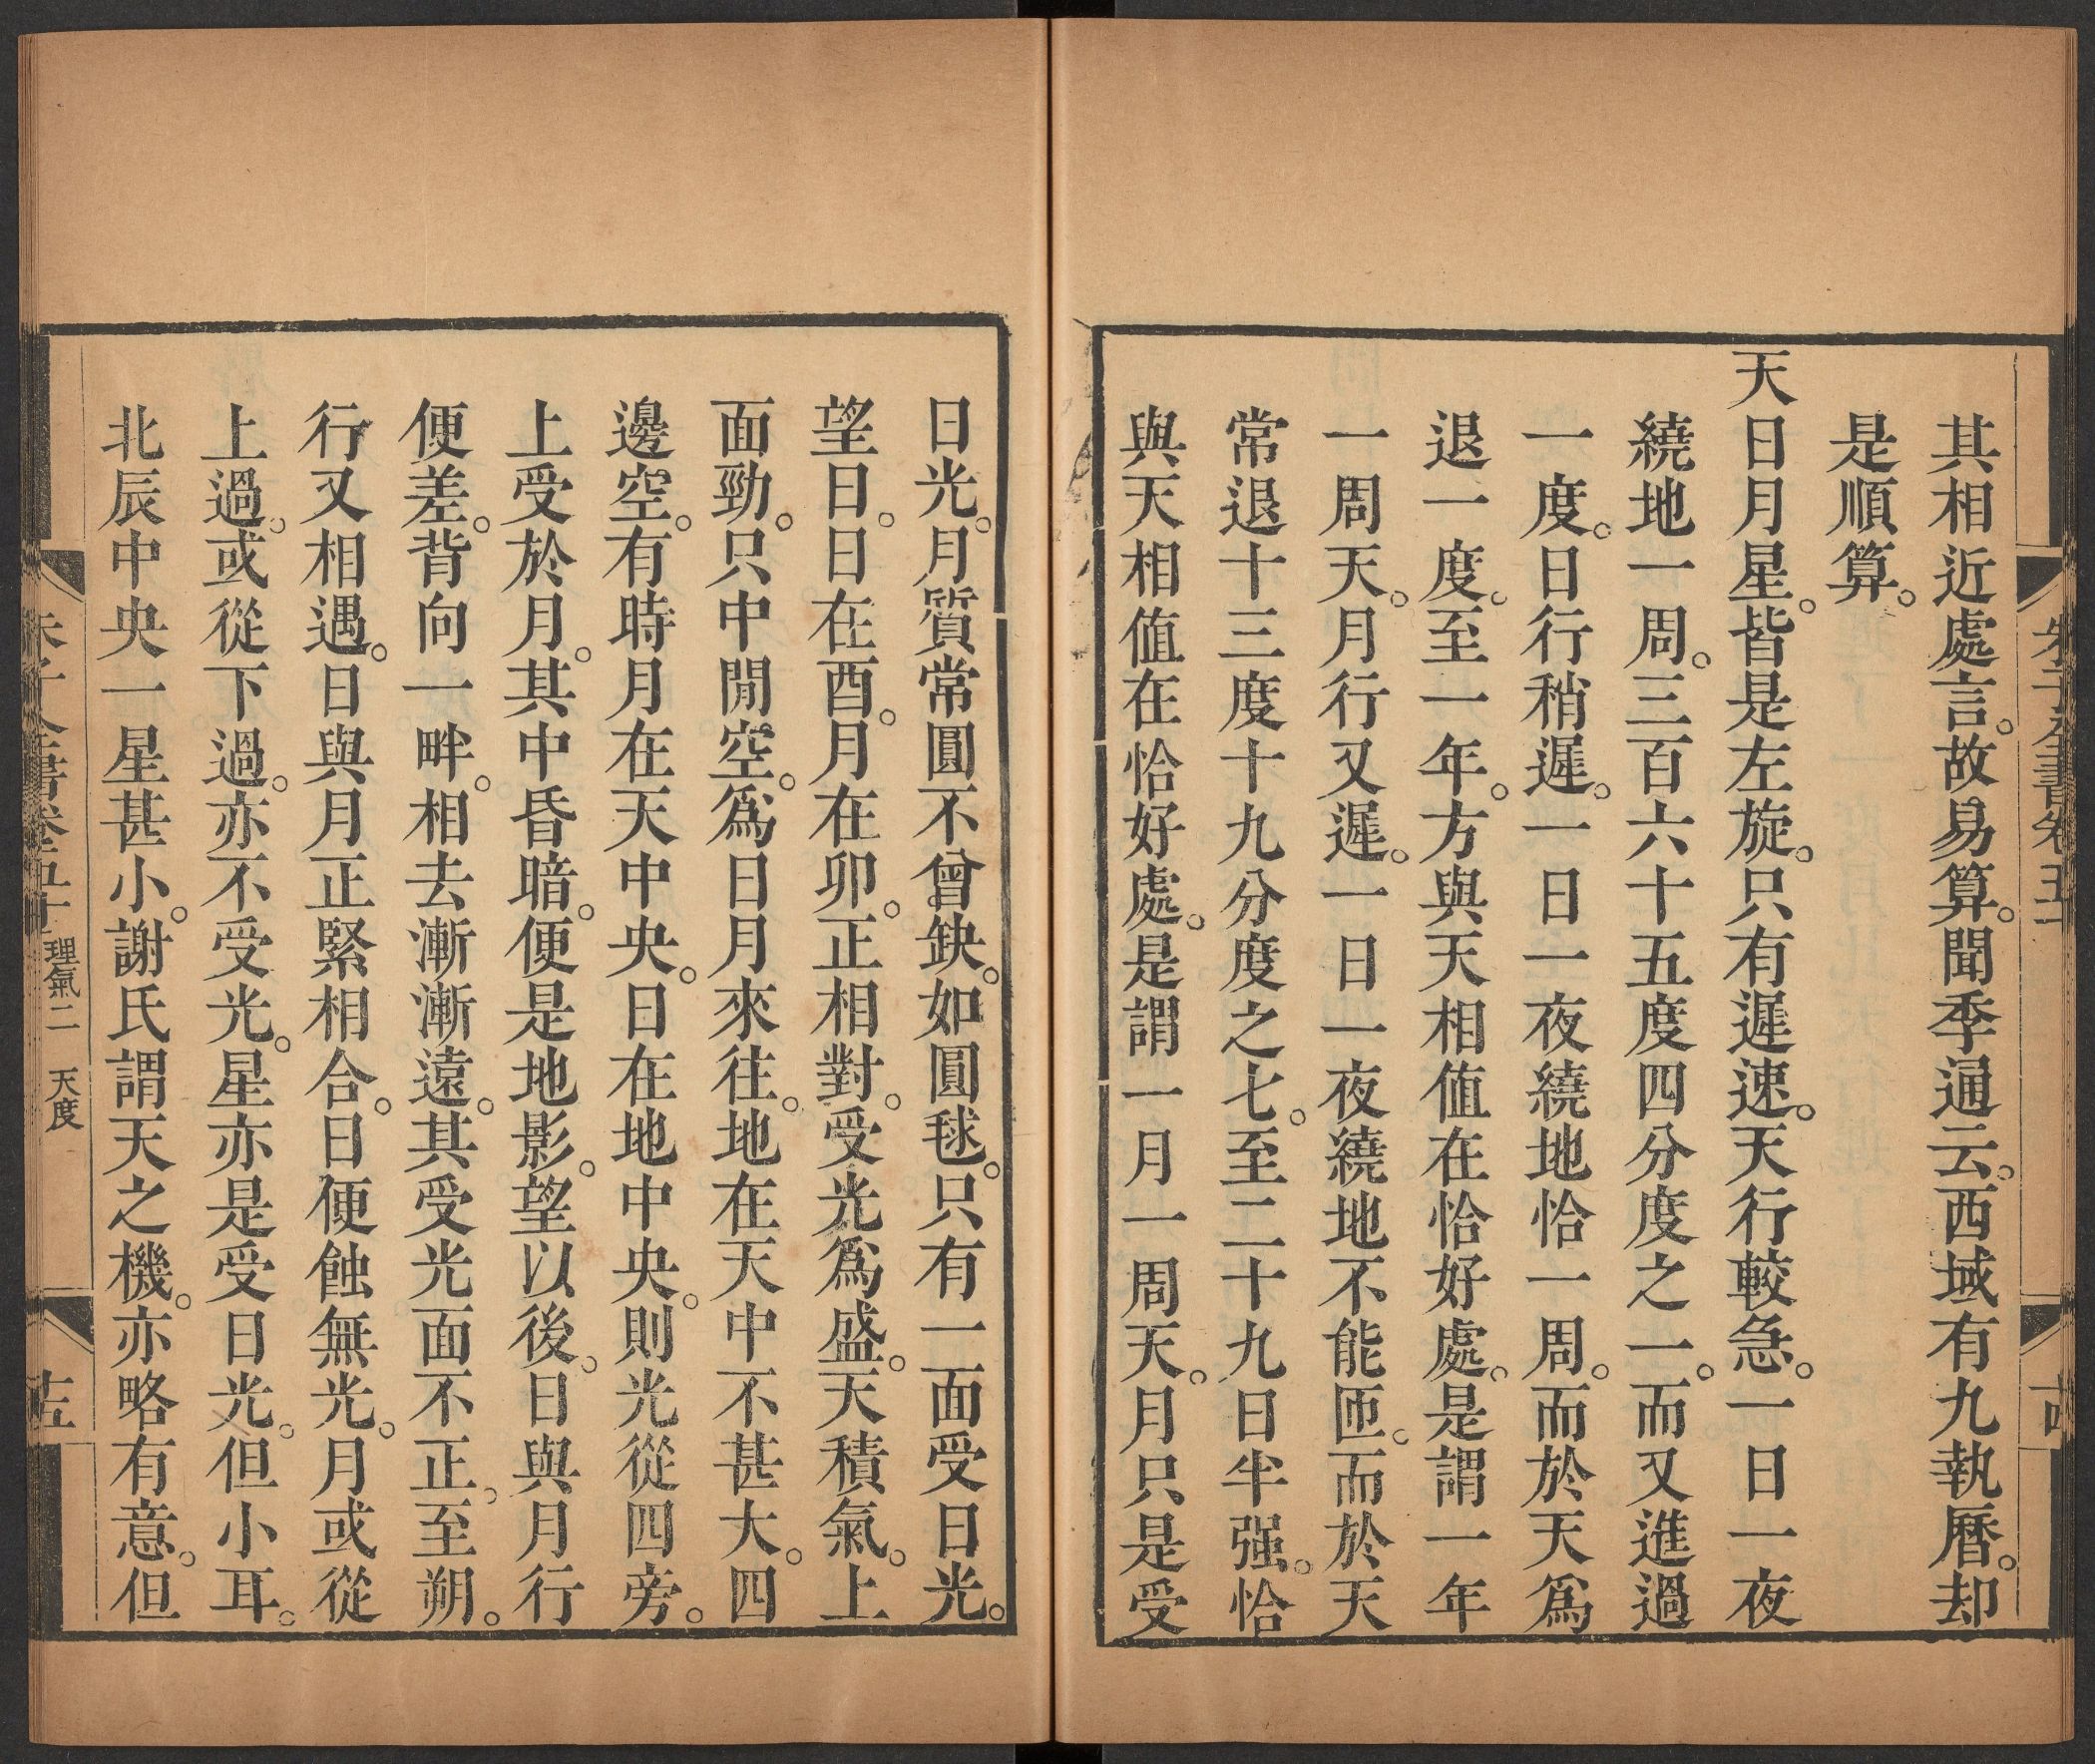 其相近處言。故易算。聞季通云。西域有九執曆。却
是順算。
天日月星。皆是左旋。只有遲速。天行較急。一日一夜
繞地一周。三百六十五度四分度之一。而又進過
一度。日行稍遲。一日一夜繞地恰一周。而於天爲
退一度。至一年。方與天相值在恰好處。是謂一年
一周天。月行又遲。一日一夜繞地不能匝。而於天
常退十三度十九分度之七。至二十九日半强。恰
與天相值在恰好處。是謂一月一周天。月只是受
日光。月質常圓不曾缺。如圓毬。只有一面受日光。
望日。日在酉。月在卯。正相對。受光爲盛。天積氣。上
面勁。只中閒空。爲日月來往。地在天中不甚大。四
邊空。有時月在天中央。日在地中央。則光從四旁。
上受於月。其中昏暗。便是地影。望以後。日與月行
便差。背向一畔。相去漸漸遠。其受光面不正。至朔。
行又相遇。日與月正緊相合。日便蝕無光。月或從
上過。或從下過。亦不受光。星亦是受日光。但小耳。
北辰中央一星甚小。謝氏謂天之機。亦略有意。但
理氣二 天度